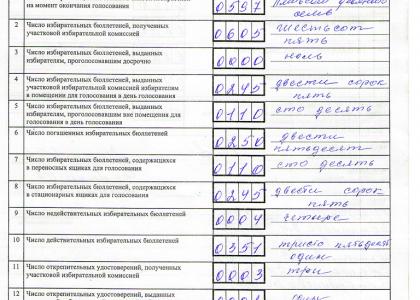 на момент окончания голосования
0597
2 Число избирательных бюллетеней, полученных
участковой избирательной комиссией
0605
шестьсот
пять
3 Число избирательных бюллетеней, выданных
избирателям, проголосовавшим досрочно
0000
ноль
4 Число избирательных бюллетеней, выданных
участковой избирательной комиссией избирателям
в помещении для голосования в день голосования
0245
двести сорок
пять
5 Число избирательных бюллетеней, выданных
избирателям, проголосовавшим вне помещения для
голосования в день голосования
0110
сто десять
6 Число погашенных избирательных бюллетеней
0250
двести
пятьдесят
7 Число избирательных бюллетеней, содержащихся
в переносных ящиках для голосования
0110
сто десять
8 Число избирательных бюллетеней, содержащихся
в стационарных ящиках для голосования
0245
двести сорок
пять
9 Число недействительных избирательных бюллетеней
0004
четыре
10 Число действительных избирательных бюллетеней
0351
триста пятьдесят
один
11 Число открепительных удостоверений, полученных
участковой избирательной комиссией
0003
три
12 Число открепительных удостоверений, выданных
один